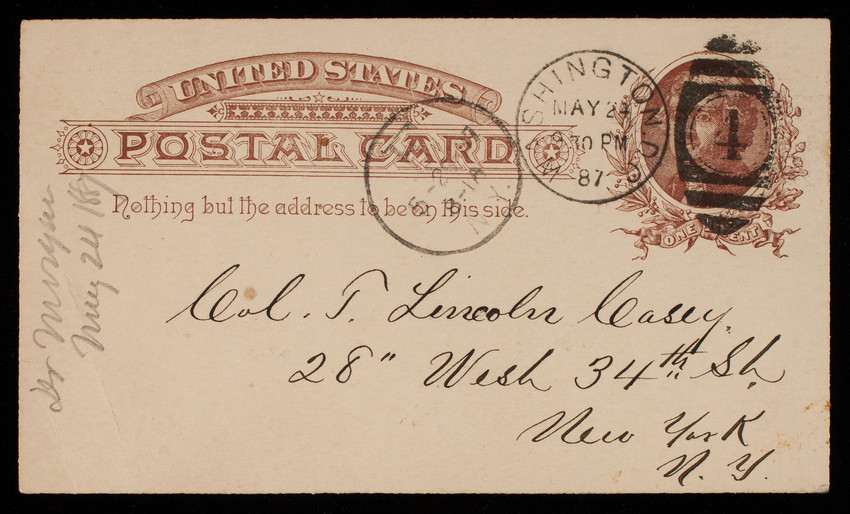 UNITED STATES
POSTAL CARD
Nothing but the address to be on this side.
WASHINGTON
MAY 24
30 PM
87
4
N.Y.
ONE CENT
Col. T. Lincoln Casey
28" West 34th St.
New York
N. Y.
Dr Morgan
May 24 1887